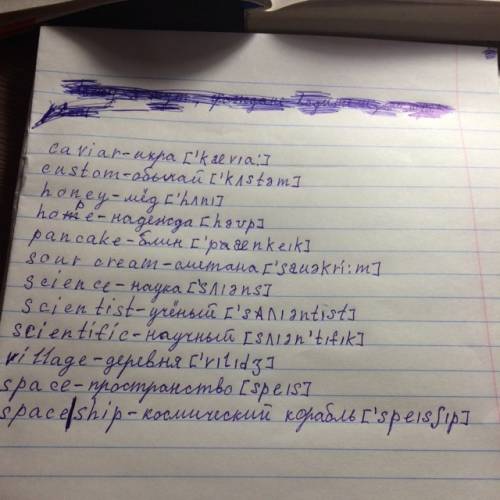 caviar-икра ['kævɪa:]
custom-обычай ['kʌstəm]
honey-мёд ['hʌnɪ]
hope-надежда [həʊp]
pancake-блин ['pæenkeɪk]
sour cream-сметана ['saʊəkri:m]
science-наука ['sʌɪəns]
scientist-учёный ['sʌɪəntɪst]
scientific-научный [sʌɪən'tɪfɪk]
village-деревня ['vɪlɪdʒ]
space-пространство [speɪs]
space|ship-космический корабль ['speɪsʃɪp]